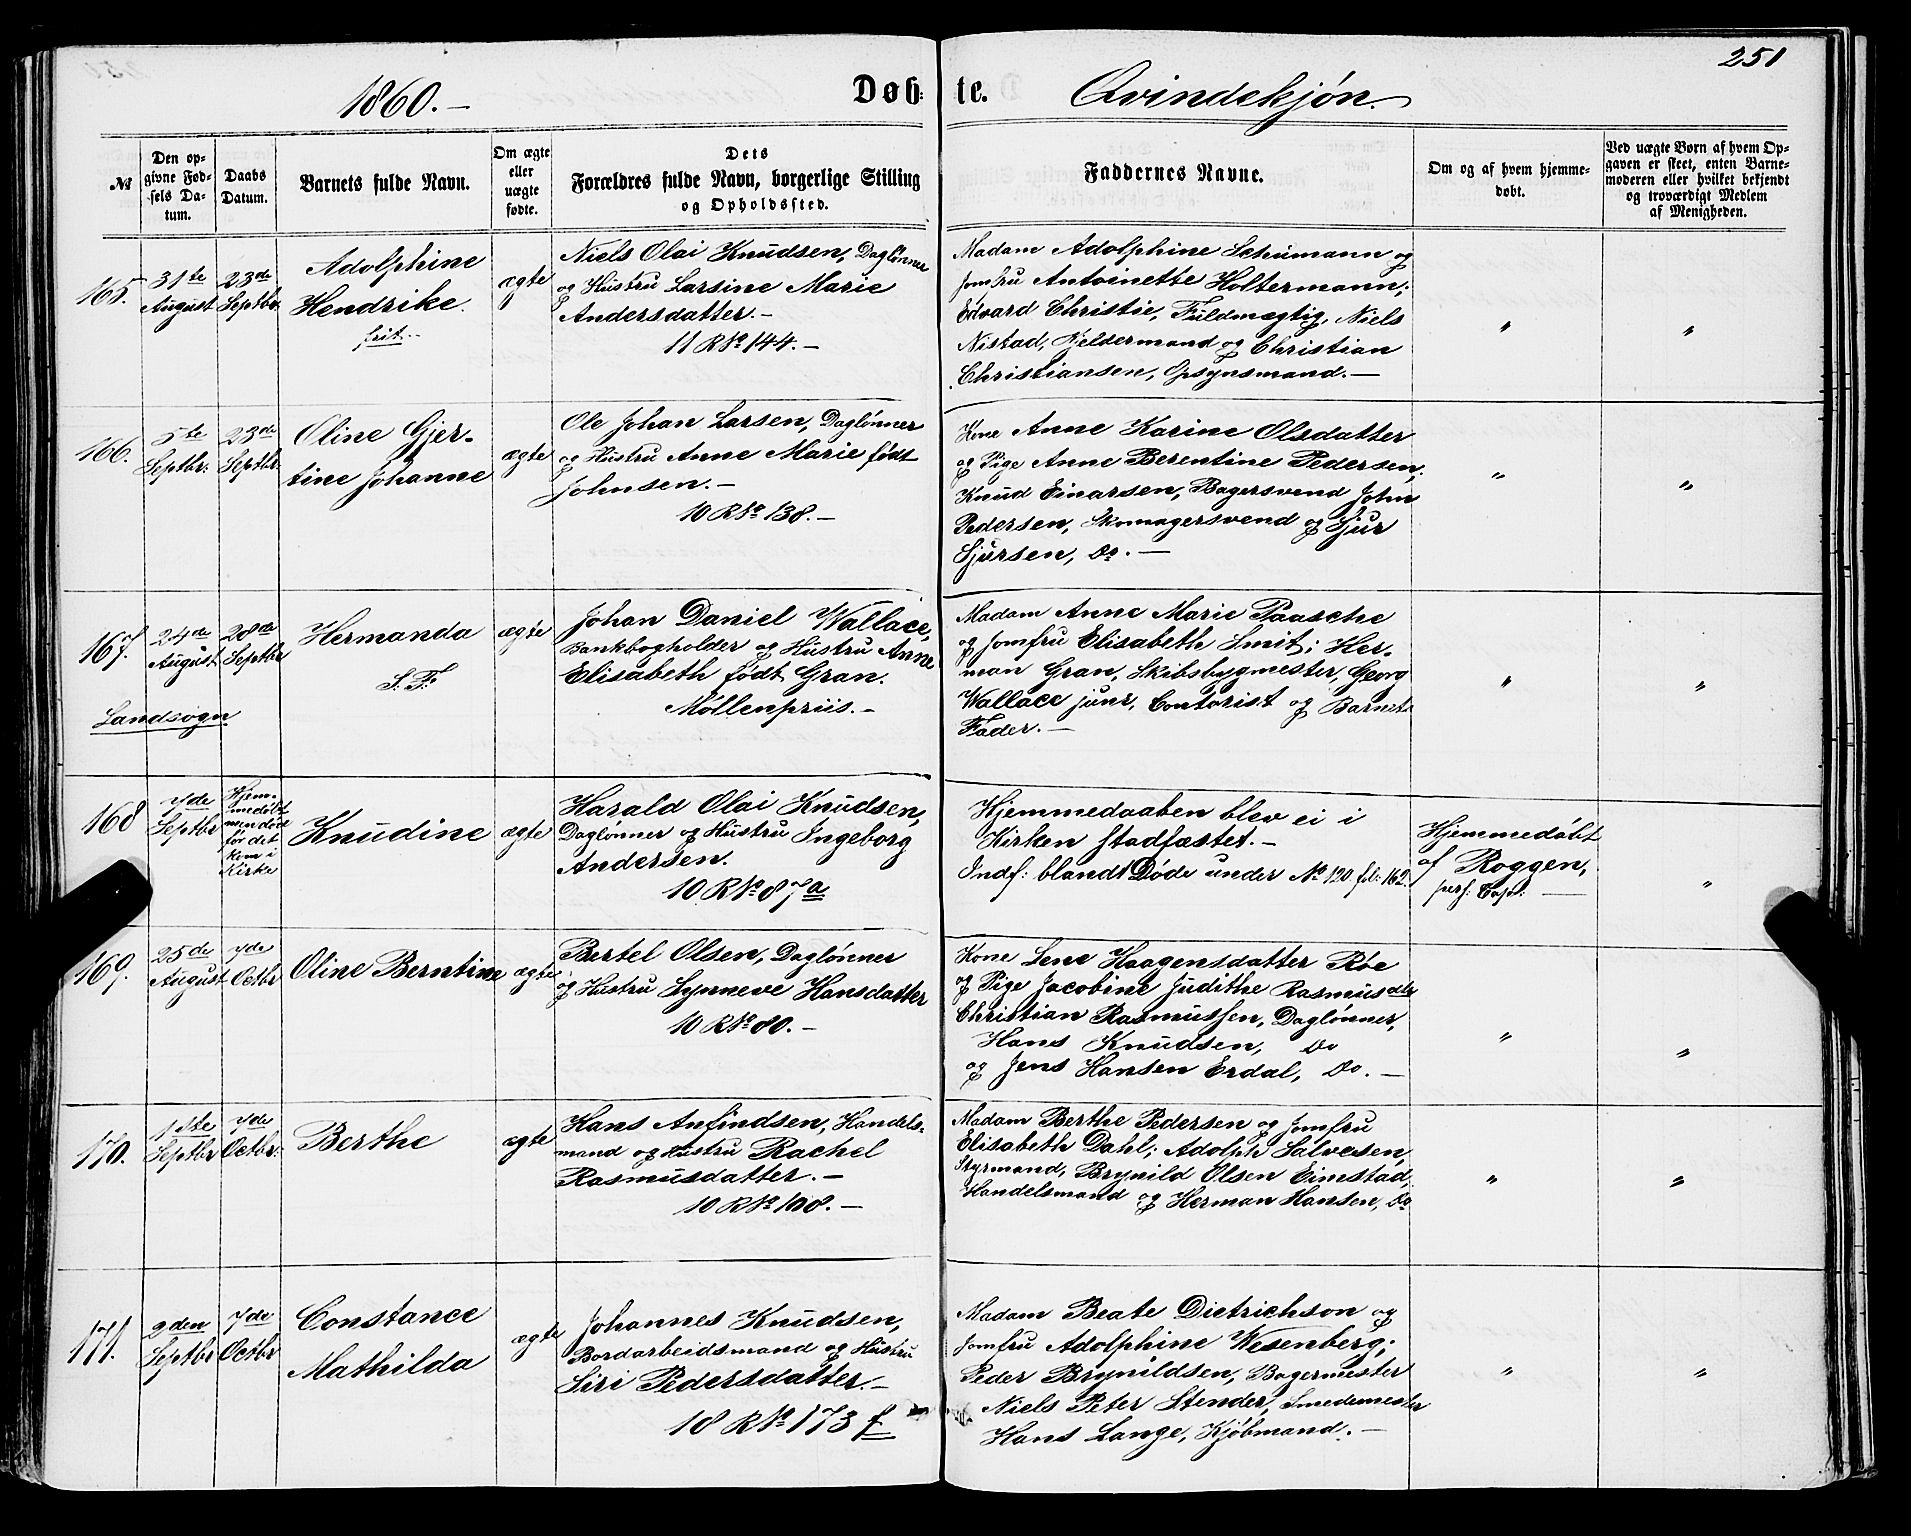 251
1860.–
Døb- te.
Qvindekjøn.
№
Den op-
givne Fød-
sels Da-
tum.
Daabs
Datum.
Barnets fulde Navn.
Om ægte
eller
uægte
fødte.
Dets
Forældres fulde Navn, borgerlige Stilling
og Opholdssted.
Faddernes Navne.
Om og af hvem hjemme-
døbt.
Ved uægte Børn af hvem Op-
gaven er skeet, enten Barne-
moderen eller hvilket bekjendt
og troværdigt Medlem
af Menigheden.
165.
31te
August
23de
Septbr
Adolphine
Hendrike.
frit.
ægte
Niels Olai Knudsen, Daglønner
og Hustru Larsine Marie
Andersdatter.–
11 R№ 144.–
Madam Adolphine Schumann og
Jomfru Antoinette Holtermann;
Edvard Christie, Fuldmægtig, Niels
Nistad, Kjeldermand og Christian
Christiansen, Opsynsmand.–
"
"
166.
5te
Septbr:
23de
Septbr.
Oline Gjer-
tine Johanne
ægte
Ole Johan Larsen, Daglønner
og Hustru Anne Marie født
Johnsen.–
10 R№ 138.–
Kone Anne Karine Olsdatter
og Pige Anne Berentine Pedersen;
Knud Einarsen, Bagersvend John
Pedersen, Skomagersvend og Sjur
Sjursen, Do.–
"
"
167.
24de
August
28de
Septbr
Landsogn
Hermanda
S. F.
ægte
Johan Daniel Wallace,
Bankbogholder og Hustru Anne
Elisabeth født Gran.
Møllenpriis.–
Madam Anne Marie Paasche
og Jomfru Elisabeth Smit; Her-
man Gran, Skibsbygmester, Georg
Wallace junr, Contorist og Barnets
Fader.–
"
"
168
7de
Septbr
Hjem-
medøbt
men død
før det
kom i
Kirke
Knudine
ægte
Harald Olai Knudsen,
Dagløнner og Hustru Ingeborg
Andersen.
10 R№ 87a
Hjemmedaaben blev ei i
Kirken stadfæstet.–
Indf: blandt Døde under № 120 fol: 162.
Hjemmedøbt
af Roggen,
pers: Cap:
"
169.
25de
August
7de
Octbr
Oline Berntine
ægte
Bertel Olsen, Dagløнner
og Hustru Synneve Hansdatter
10 R№ 80.–
Kone Lene Haagensdatter Røe
og Pige Jacobine Judithe Rasmusdtr
Christian Rasmussen, Dagløнner,
Hans Knudsen, Do
og Jens Hansen Erdal, Do.–
"
"
170.
1ste
Septbr
7de
Octbr.
Berthe
ægte
Hans Anfindsen, Handels-
mand og Hustru Rachel
Rasmusdatter.–
10 R№ 108.–
Madam Berthe Pedersen og Jomfru
Elisabeth Dahl; Adolph Salvesen,
Styrmand, Brynild Olsen Eimestad,
Handelsmand og Herman Hansen, Do
"
"
171.
2den
Septbr
7de
Octbr
Constance
Mathilda
ægte
Johannes Knudsen,
Bordarbeidsmand og Hustru
Siri Pedersdatter.–
18 R№ 173 f
Madam Beate Dietrichson og
Jomfru Adolphine Wesenberg;
Peder Brynildsen, Bagermester
Niels Peter Stender, Smedemester
Hans Lange, Kjøbmand.–
"
"